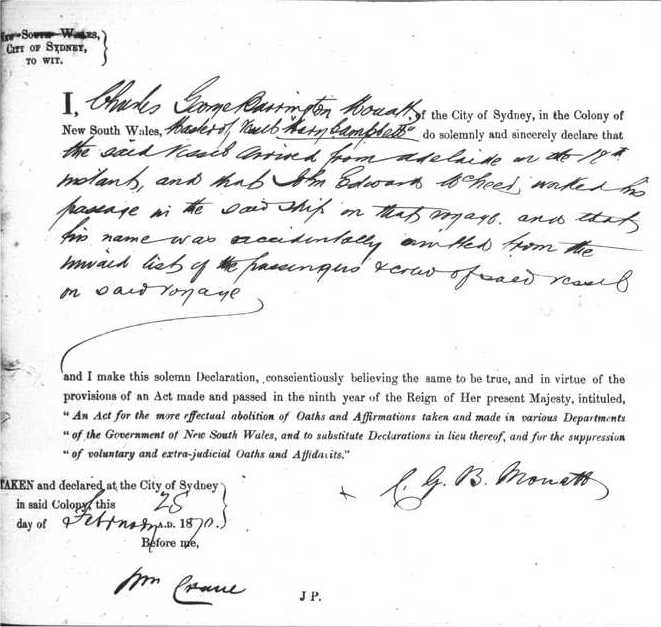 New South Wales,
City of Sydney,
to wit.
I, Charles George Barrington Mouatt, of the City of Sydney, in the Colony of
New South Wales, Master of Vessel "Mary Campbell" do solemnly and sincerely declare that
the said Vessel arrived from Adelaide on the 18th
instant, and that John Edward worked his
passage in the said ship on that voyage. and that
his name was accidentally omitted from the
inward list of the passengers & crew of said vessel
on said voyage
and I make this solemn Declaration, conscientiously believing the same to be true, and in virtue of the
provisions of an Act made and passed in the ninth year of the Reign of Her present Majesty, intituled,
"An Act for the more effectual abolition of Oaths and Affirmations taken and made in various Departments
"of the Government of New South Wales, and to substitute Declarations in lieu thereof, and for the suppression
"of voluntary and extra-judicial Oaths and Affidavits."
TAKEN and declared at the City of Sydney
in said Colony, this 25
day of February A.D. 1870.
Before me,
x C. G. B. Mouatt
Wm Crane
J P.